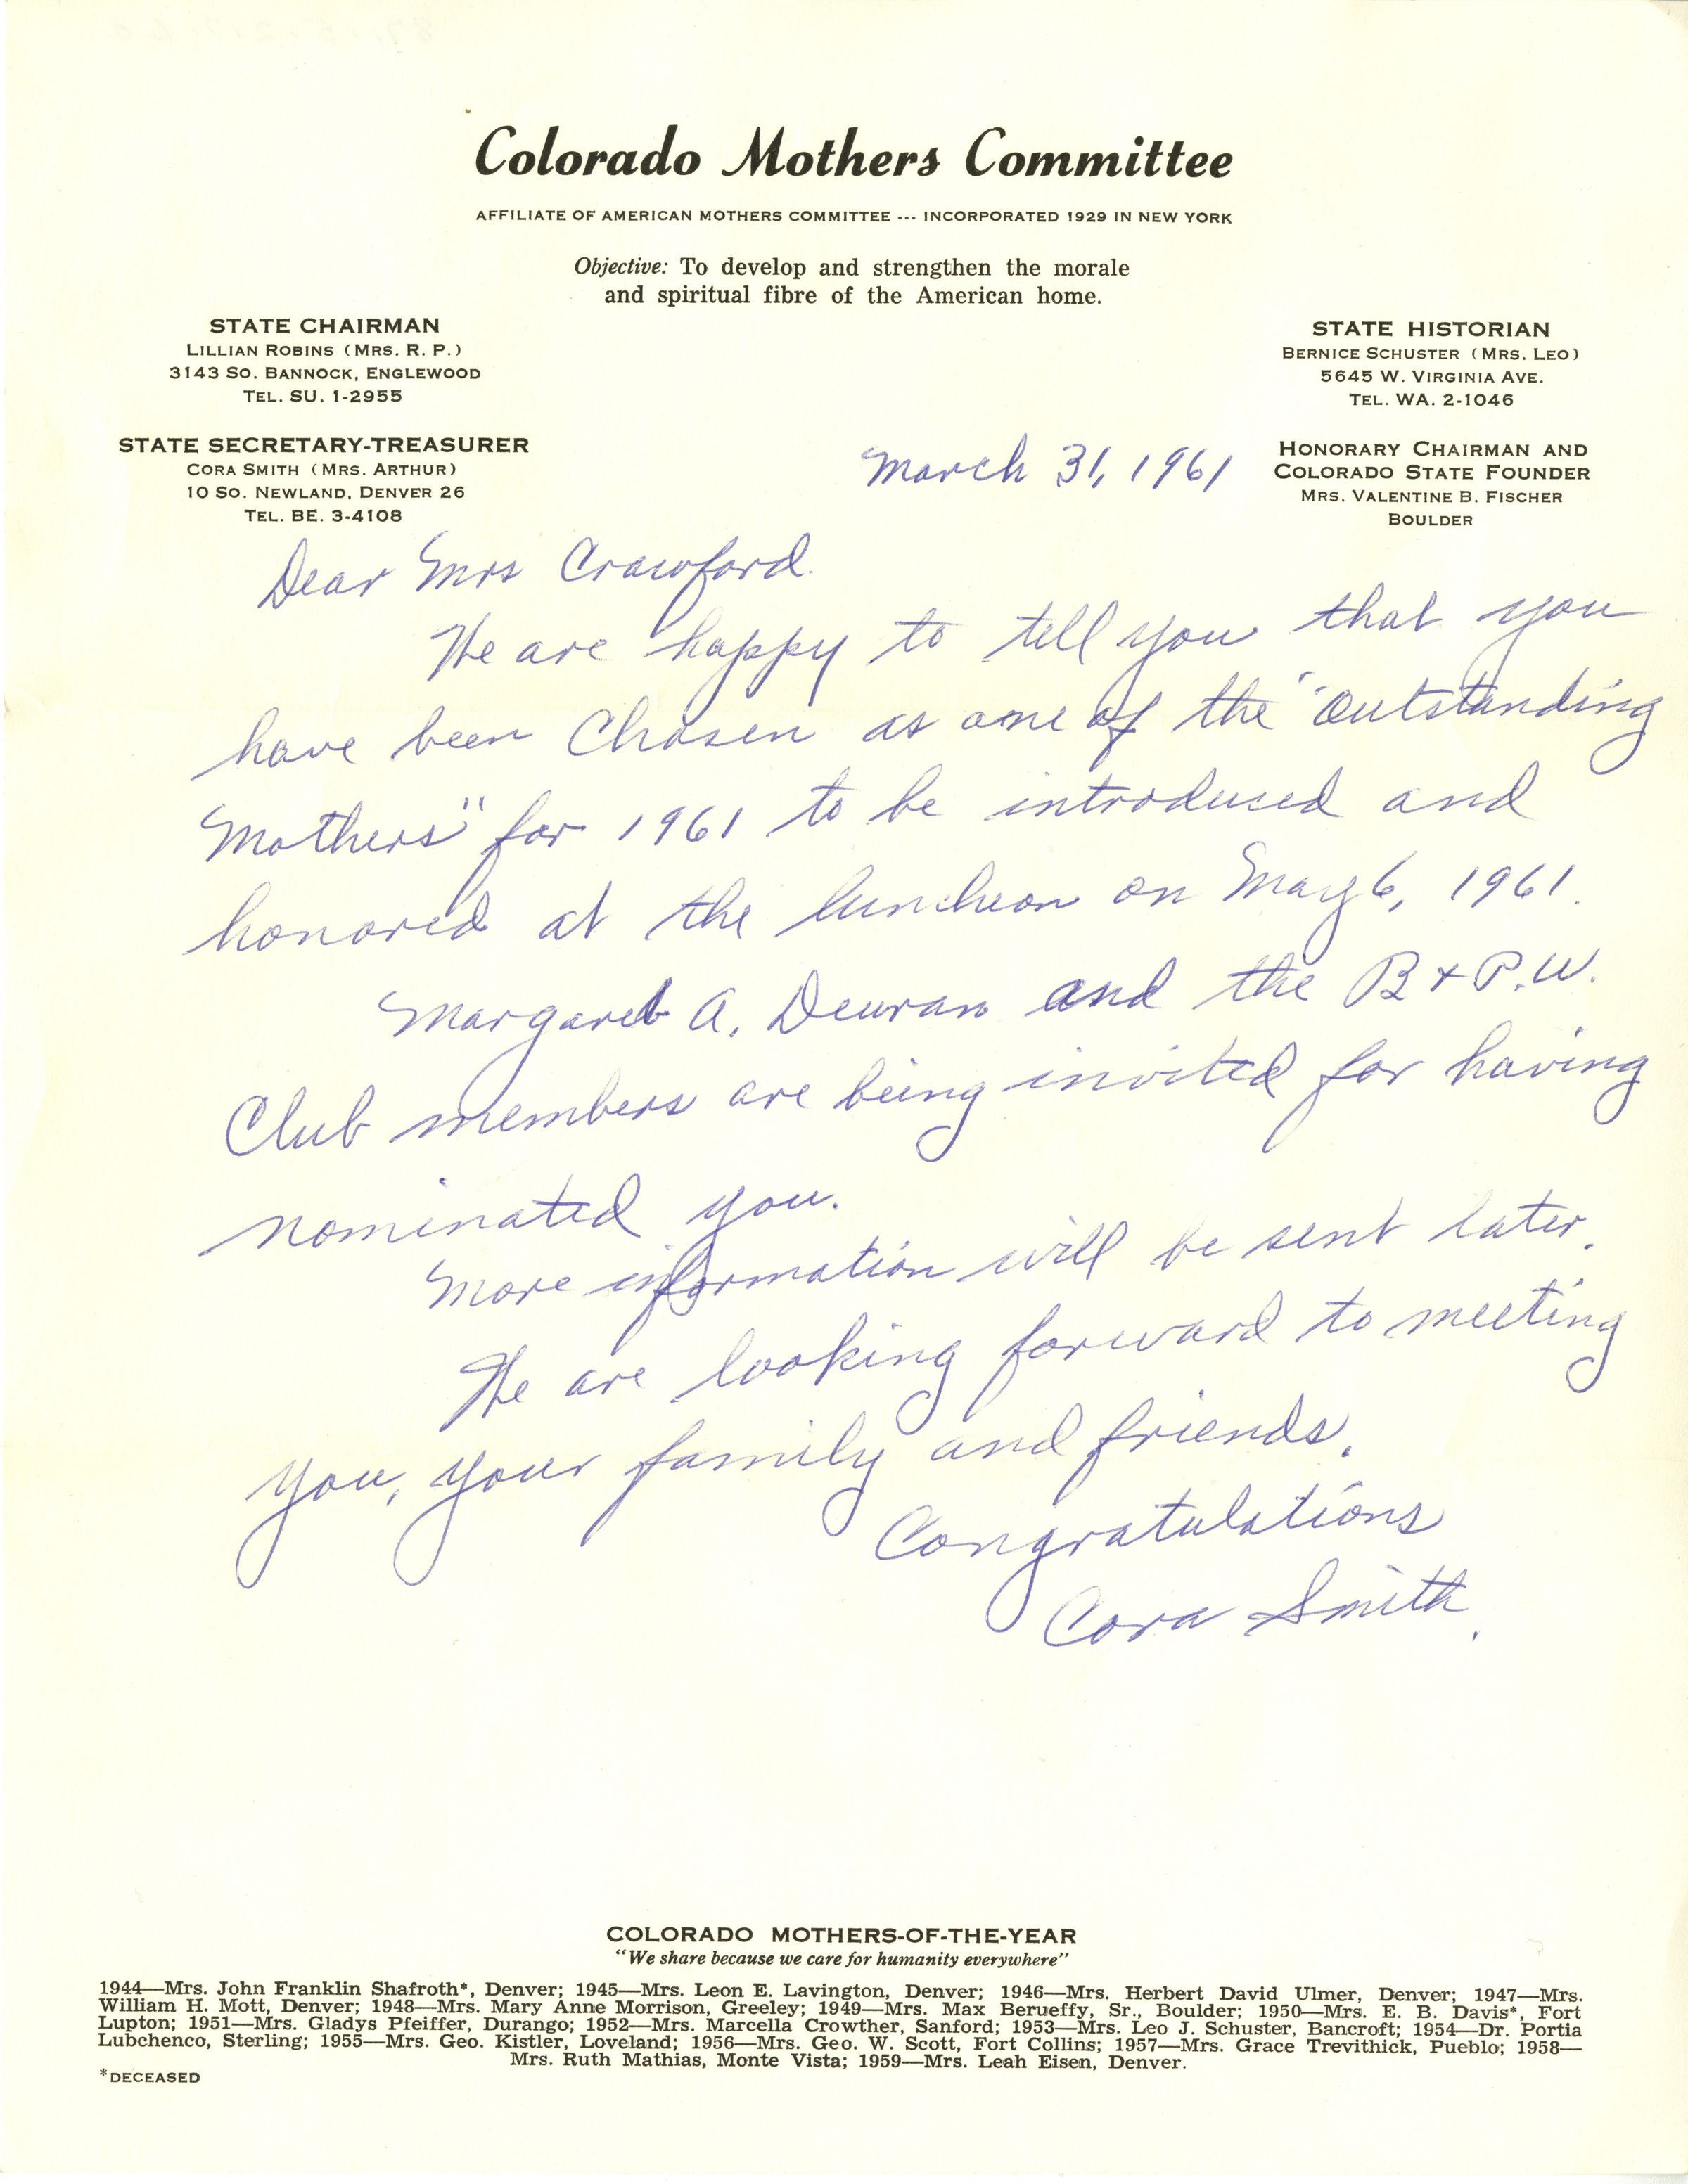 Colorado Mothers Committee
AFFILIATE OF AMERICAN MOTHERS COMMITTEE --- INCORPORATED 1929 IN NEW YORK
Objective: To develop and strengthen the morale
and spiritual fibre of the American home.
STATE CHAIRMAN
LILLIAN ROBINS (MRS. R. P.)
3143 SO. BANNOCK, ENGLEWOOD
TEL. SU. 1-2955
STATE SECRETARY-TREASURER
CORA SMITH (MRS. ARTHUR)
10 SO. NEWLAND, DENVER 26
TEL. BE. 3-4108
STATE HISTORIAN
BERNICE SCHUSTER (MRS. LEO)
5645 W. VIRGINIA AVE.
TEL. WA. 2-1046
HONORARY CHAIRMAN AND
COLORADO STATE FOUNDER
MRS. VALENTINE B. FISCHER
BOULDER
March 31, 1961
Dear Mrs Crawford.
We are happy to tell you that you
have been Chosen as one of the "Outstanding
Mothers" for 1961 to be introduced and
honored at the luncheon on May 6, 1961.
Margaret A. and the B + P.W.
Club members are being invited for having
nominated you.
More information will be sent later.
We are looking forward to meeting
you, your family and friends.
Congratulations
Cora Smith.
COLORADO MOTHERS-OF-THE-YEAR
"We share because we care for humanity everywhere"
1944—Mrs. John Franklin Shafroth*, Denver; 1945—Mrs. Leon E. Lavington, Denver; 1946—Mrs. Herbert David Ulmer, Denver; 1947—Mrs.
William H. Mott, Denver; 1948—Mrs. Mary Anne Morrison, Greeley; 1949—Mrs. Max Berueffy, Sr., Boulder; 1950—Mrs. E. B. Davis*, Fort
Lupton; 1951—Mrs. Gladys Pfeiffer, Durango; 1952—Mrs. Marcella Crowther, Sanford; 1953—Mrs. Leo J. Schuster, Bancroft; 1954—Dr. Portia
Lubchenco, Sterling; 1955—Mrs. Geo. Kistler, Loveland; 1956—Mrs. Geo. W. Scott, Fort Collins; 1957—Mrs. Grace Trevithick, Pueblo; 1958—
Mrs. Ruth Mathias, Monte Vista; 1959—Mrs. Leah Eisen, Denver.
*DECEASED